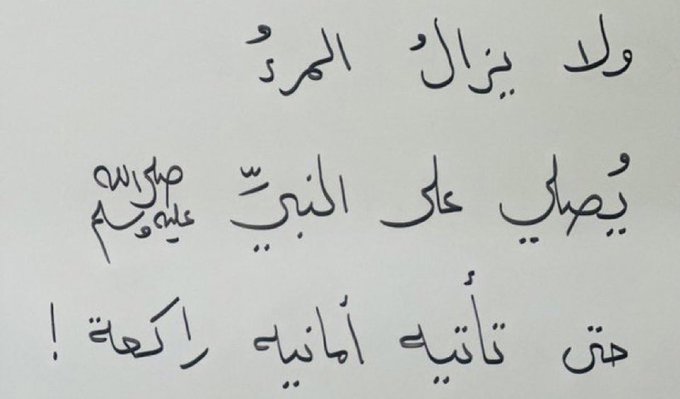 ولا يزالُ المرءُ
يُصلي على النبيِّ صلى الله عليه وسلم
حتى تأتيه أمانيه راكعة !